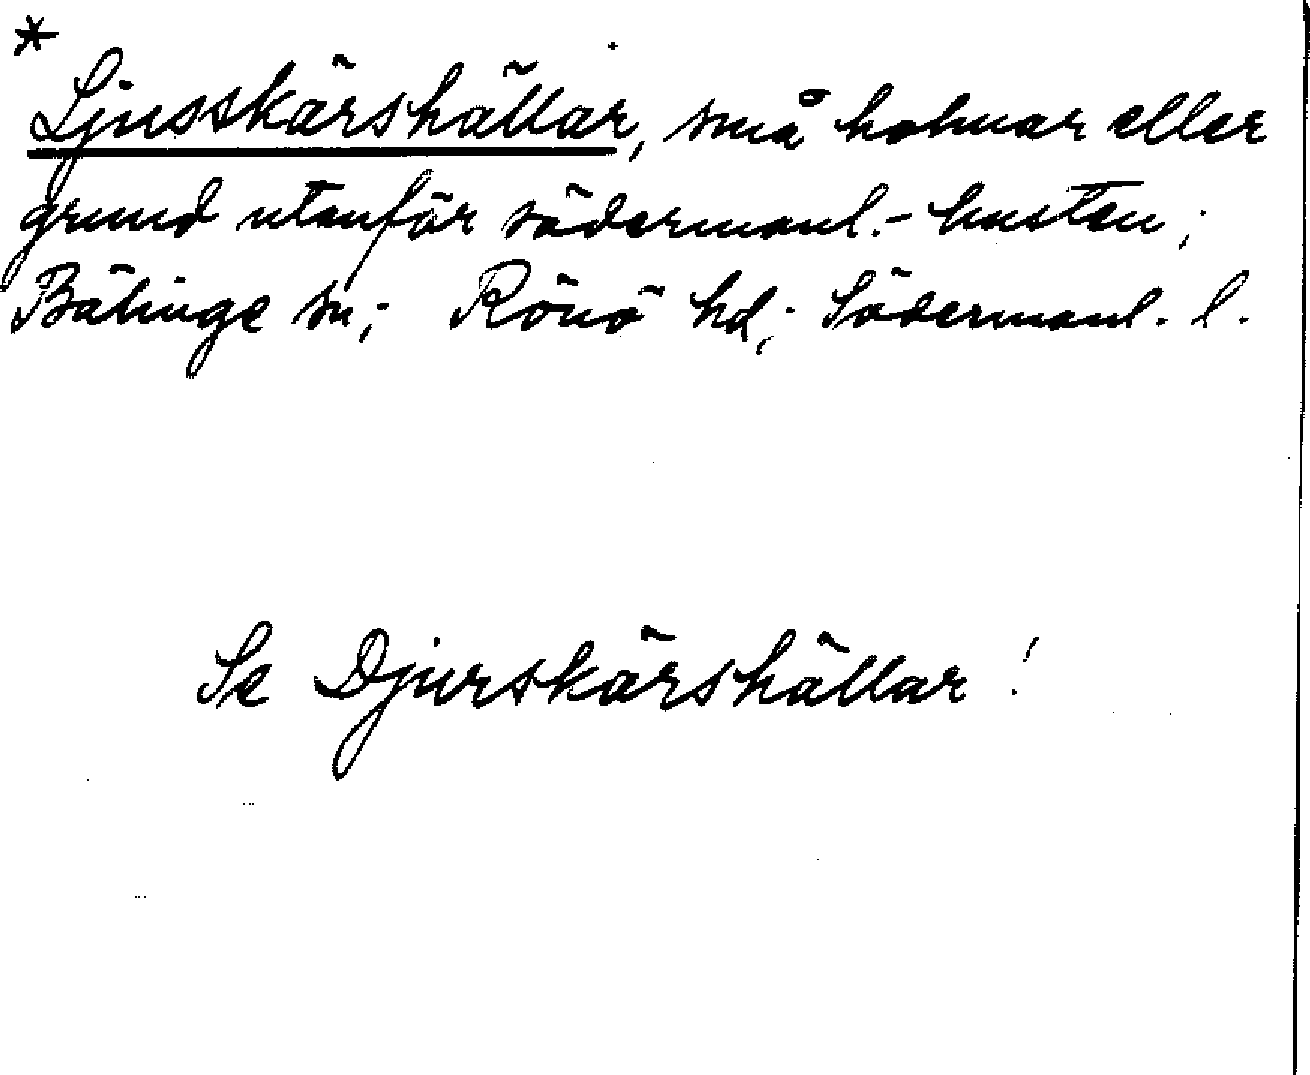 * Ljusskärshällar, små holmar eller
grund utanför södermanl.- kusten;
Bälinge sn; Rönö hd; Södermanl. l.
Se Djurskärshällar!